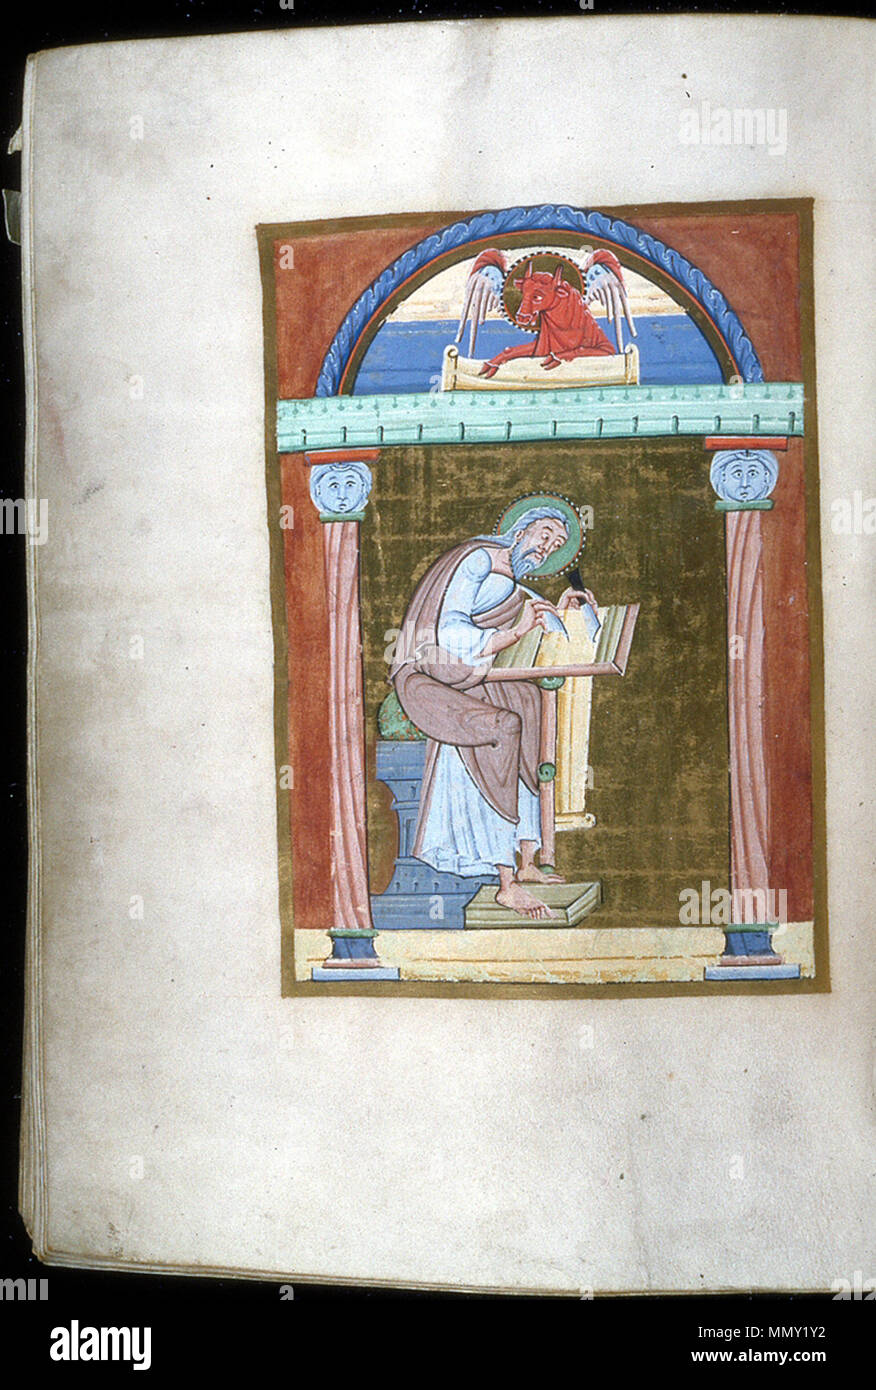 alamy
alamy
Image ID: MMY1Y2
www.alamy.com